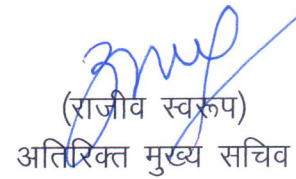 (राजीव स्वरूप)
अतिरिक्त मुख्य सचिव